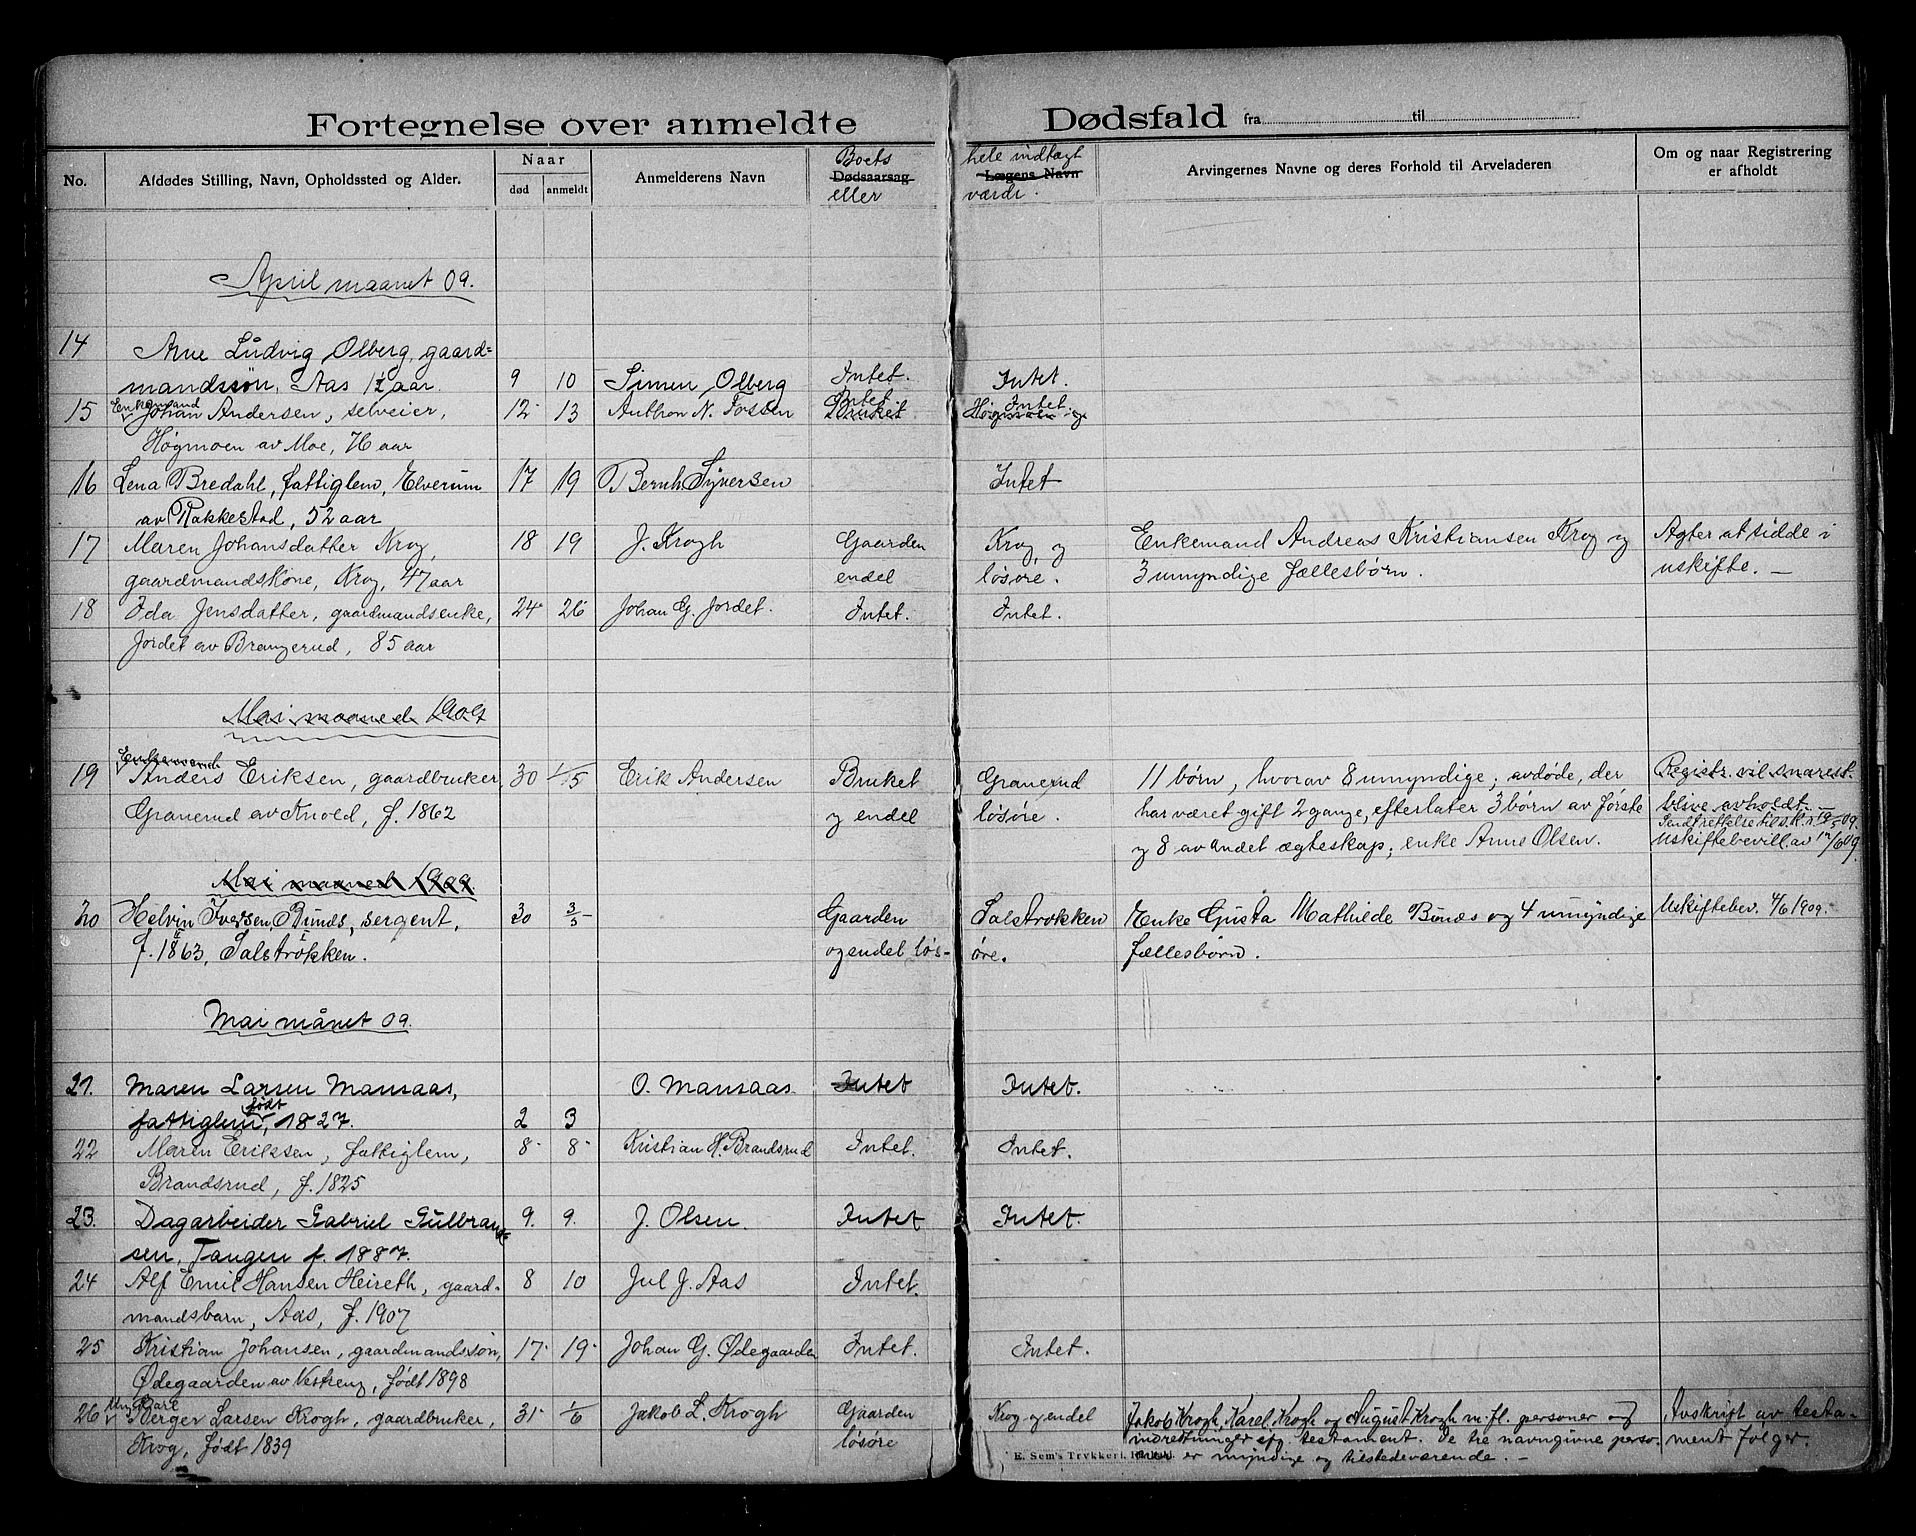 Fortegnelse over anmeldte Dødsfald fra til
No. Afdødes Stilling, Navn, Opholdssted og Alder. Naar død anmeldt Anmelderens Navn Dødsaarsag Boets eller Lægens Navn hele indtægt værdi. Arvingernes Navne og deres Forhold til Arveladeren Om og naar Registrering er afholdt
April maanet 09.
14 Arne Ludvig Olberg, gaard-
mandssøn, Aas 1½ aar. 9 10 Simen Olberg Intet. Intet.
15 Enkemand Johan Andersen, selveier, 12 13 Anthon N. Fossen Intet Bruket Intet. Høgmoen og
Høgmoen av Moe, 76 aar
16 Lena Bredahl, fattiglem, Elverum 17 19 Bernh. Syversen Intet
av Rakkestad, 52 aar
17 Maren Johansdatter Krog, 18 19 J. Krogh Gaarden Krog, og Enkemand Andreas Kristiansen Krog og Agter at sidde i
gaardmandskone, Krog, 47 aar endel løsøre. 3 umyndige fællesbørn. uskifte. —
18 Ida Jensdatter, gaardmandsenke, 24 26 Johan G. Jordet. Intet. Intet.
Jordet av Brangerud, 85 aar
Mai maaned 1909
19 Enkemand Anders Eriksen, gaardbruker, 30 1/5 Erik Andersen Bruket Granerud 11 børn, hvorav 8 umyndige; avdøde, der Registr. vil snarest
Granerud av Knold, f. 1862 og endel løsøre. har været gift 2 gange, efterlater 3 børn av første blive avholdt. —
og 8 av andet ægteskap; enke Anne Olsen. Uskiftebevill. av 17/6 09.
Mai maaned 1909.
20 Helvin Iversen Bunæs, sergent, 30 3/5 Gaarden Salstrokken Enke Gusta Mathilde Bunæs og 4 umyndige Uskiftebev. 4/6 1909.
f. 1863, Salstrøkken. og endel løs- øre. fællesbørn.
Mai månet 09.
21. Maren Larsen Mansaas, O. Mansaas. Intet Intet.
fattiglem, født 1827. 2 3
22 Maren Eriksen, fattiglem, 8 8 Kristian H. Brandsrud Intet. Intet.
Brandsrud, f. 1825
23. Dagarbeider Gabriel Gulbrand- 9. 9. J. Olsen. Intet Intet.
sen, Tangen f. 1887.
24 Alf Emil Hansen Heireth, gaard- 8 10 Jul J. Aas Intet.
mandsbarn, Aas, f. 1907
25 Kristian Johansen, gaardmandssøn, 17 19 Johan G. Ødegaarden Intet. Intet.
Ødegaarden av Vestreng, født 1898
26 Ungkare Berger Larsen Krogh, gaardbruker, 31 1/6 Jakob L. Krogh Gaarden Krog og endel Jakob Krogh, Karel Krogh og August Krogh m. fl. personer og Avskrift av testa-
Krog, født 1839 løsøre indretninger efg. testament. De tre navngivne perso- ment følger.
E. Sem's Trykkeri, ner er myndige og tilstedeværende. —